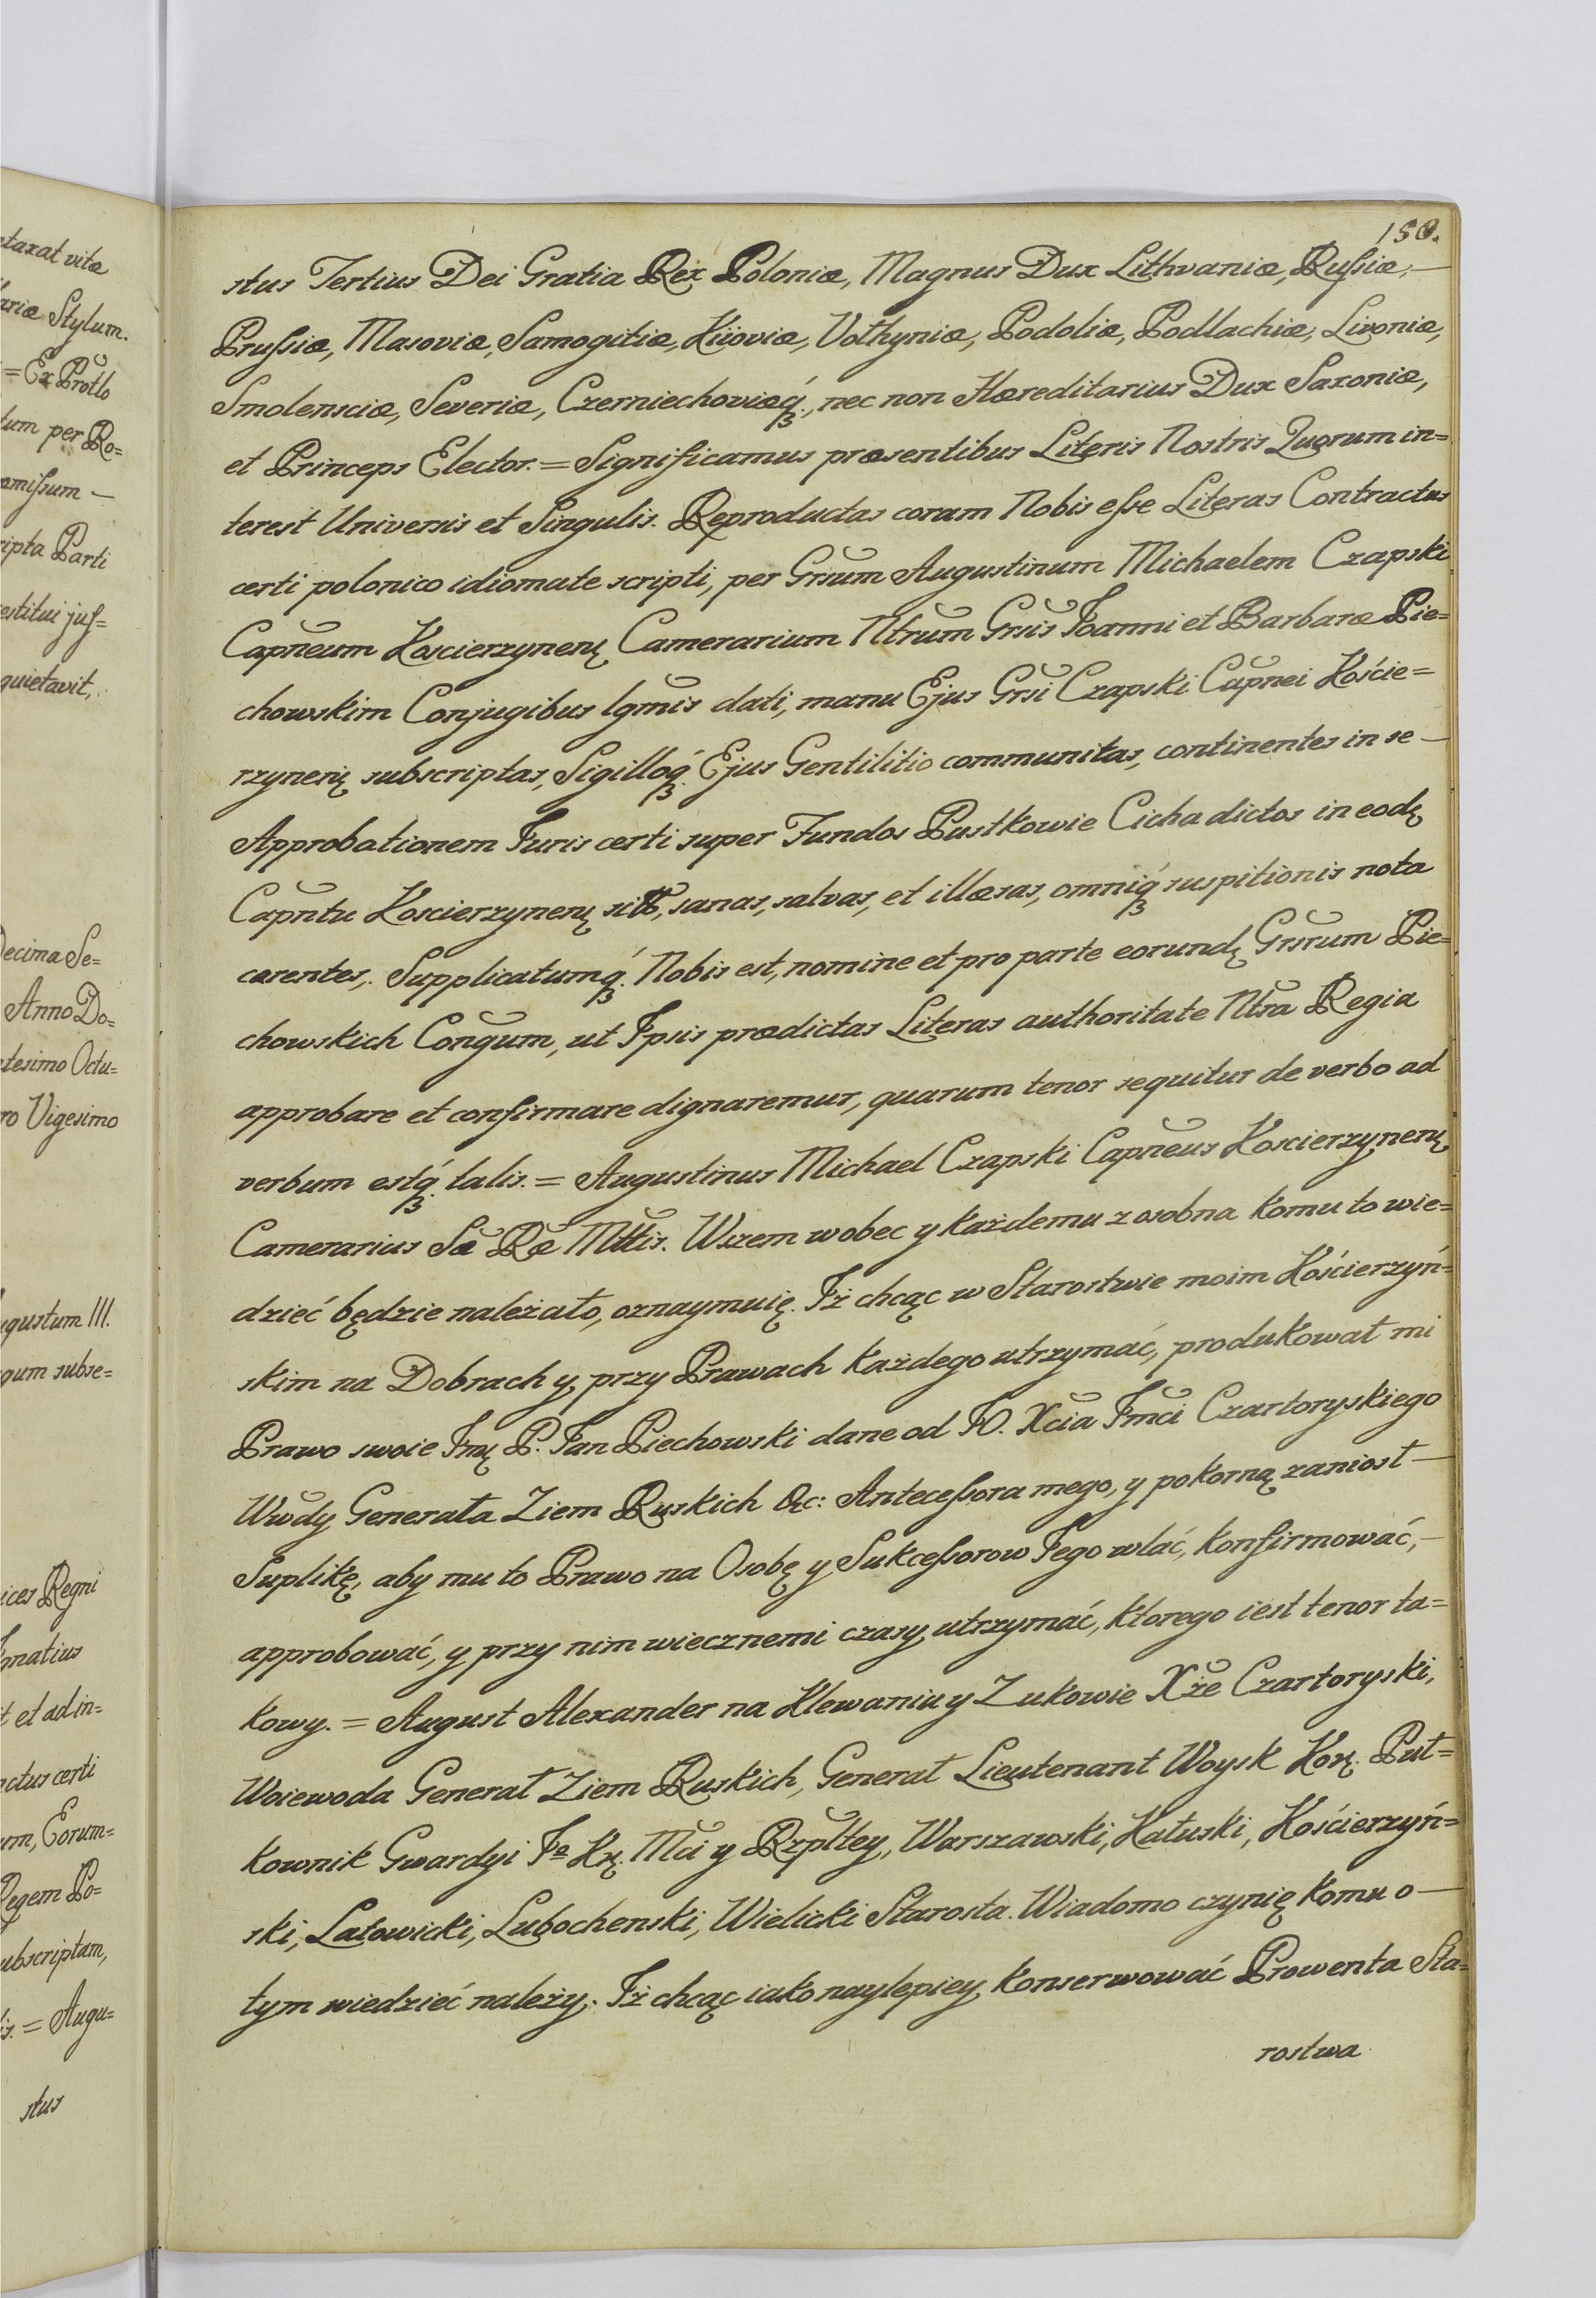 taxat vitæ
ariæ Stylum.
= Ex Protlo
tum per Ro=
omiſsum —
ripta Parti
estitui juſ=
quietavit,
Decima Se=
Anno Do=
tesimo Octu=
ro Vigesimo
ugustum III.
gum subse=
ices Regni
Ignatius
t et ad in=
actus certi
um, Eorum=
Regem Po=
ubscriptam,
is. = Augu=
stus
150.
stus Tertius Dei Gratia Rex Poloniæ, Magnus Dux Lithvaniæ, Ruſsiæ, —
Pruſsiæ, Masoviæ, Samogitiæ, Kiioviæ, Volhyniæ, Podoliæ, Podlachiæ, Livoniæ,
Smolensciæ, Severiæ, Czerniechoviæq́ꝫ, nec non Hæreditarius Dux Saxoniæ,
et Princeps Elector. = Significamus præsentibus Literis Nostris Quorum in=
terest Universis et Singulis. Reproductas coram Nobis eſse Literas Contractus
certi polonico idiomate scripti, per Grsum Augustinum Michaelem Czapski
Capneum Koscierzynenę Camerarium Ntrum Grsis Joanni et Barbaræ Pie=
chowskim Conjugibus lgmis dati, manu Ejus Grsi Czapski Capnei Koście=
rzynenę subscriptas, Sigilloq́ꝫ Ejus Gentilitio communitas, continentes in se —
Approbationem Juris certi super Fundos Pustkowie Cicha dictos in eodę
Capntu Koscierzynenę sitt, sanas, salvas, et illæsas, omniq́ꝫ suspitionis nota
carentes, Supplicatumq́ꝫ Nobis est, nomine et pro parte eorundę Grsrum Pie=
chowskich Congum, ut Ipsis prædictas Literas authoritate Ntra Regia
approbare et confirmare dignaremur, quarum tenor sequitur de verbo ad
verbum estq́ꝫ talis. = Augustinus Michael Czapski Capneus Koscierzynenę
Camerarius Sæ Ræ Mttis. Wszem wobec y każdemu z osobna komu to wie=
dzieć będzie należało, oznaymuię. Iż chcąc w Starostwie moim Kościerzyń=
skim na Dobrach y przy Prawach każdego utrzymać, produkował mi
Prawo swoie Jmę P. Jan Piechowski dane od JO. Xcia Jmci Czartoryskiego
Wwdy Generała Ziem Ruskich &c: Anteceſsora mego, y pokorną zaniosł —
Suplikę, aby mu to Prawo na Osobę y Sukceſsorow Jego wlać, konfirmować, —
approbować, y przy nim wiecznemi czasy utrzymać, ktorego iest tenor ta=
kowy. = August Alexander na Klewaniu y Zukowie Xże Czartoryski,
Woiewoda Generał Ziem Ruskich, Generał Lieutenant Woysk Korę. Puł=
kownik Gwardyi Je Kę. Mci y Rzpltey, Warszawski, Kałuski, Kościerzyń=
ski, Latowicki, Lubochenski, Wielicki Starosta. Wiadomo czynię komu o —
tym wiedzieć należy. Iż chcąc iako naylepiey konserwować Prowenta Sta=
rostwa